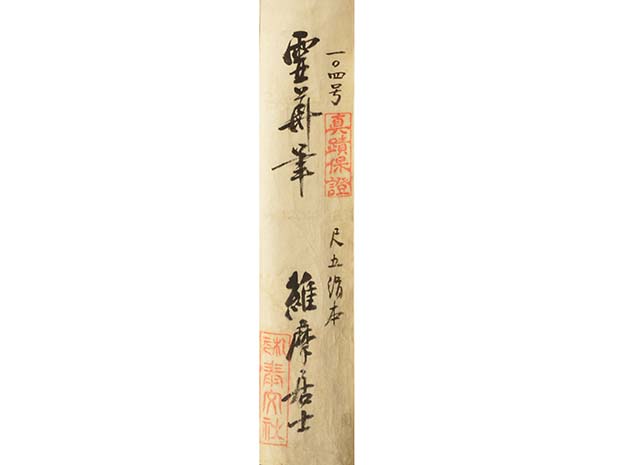 一〇四号
真蹟保證
尺五絹本
雲華筆
維摩居士